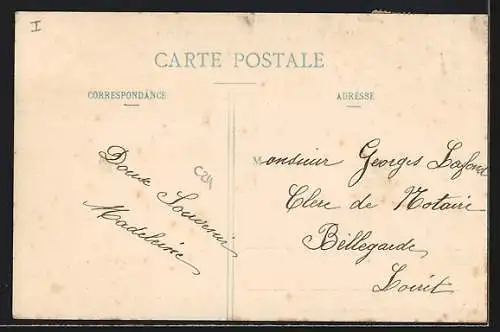 I
CARTE POSTALE
CORRESPONDANCE
ADRESSE
Doux Souvenir
Madeleine
C24
Monsieur Georges Lafond
Clerc de Notaire
Bellegarde
Loiret